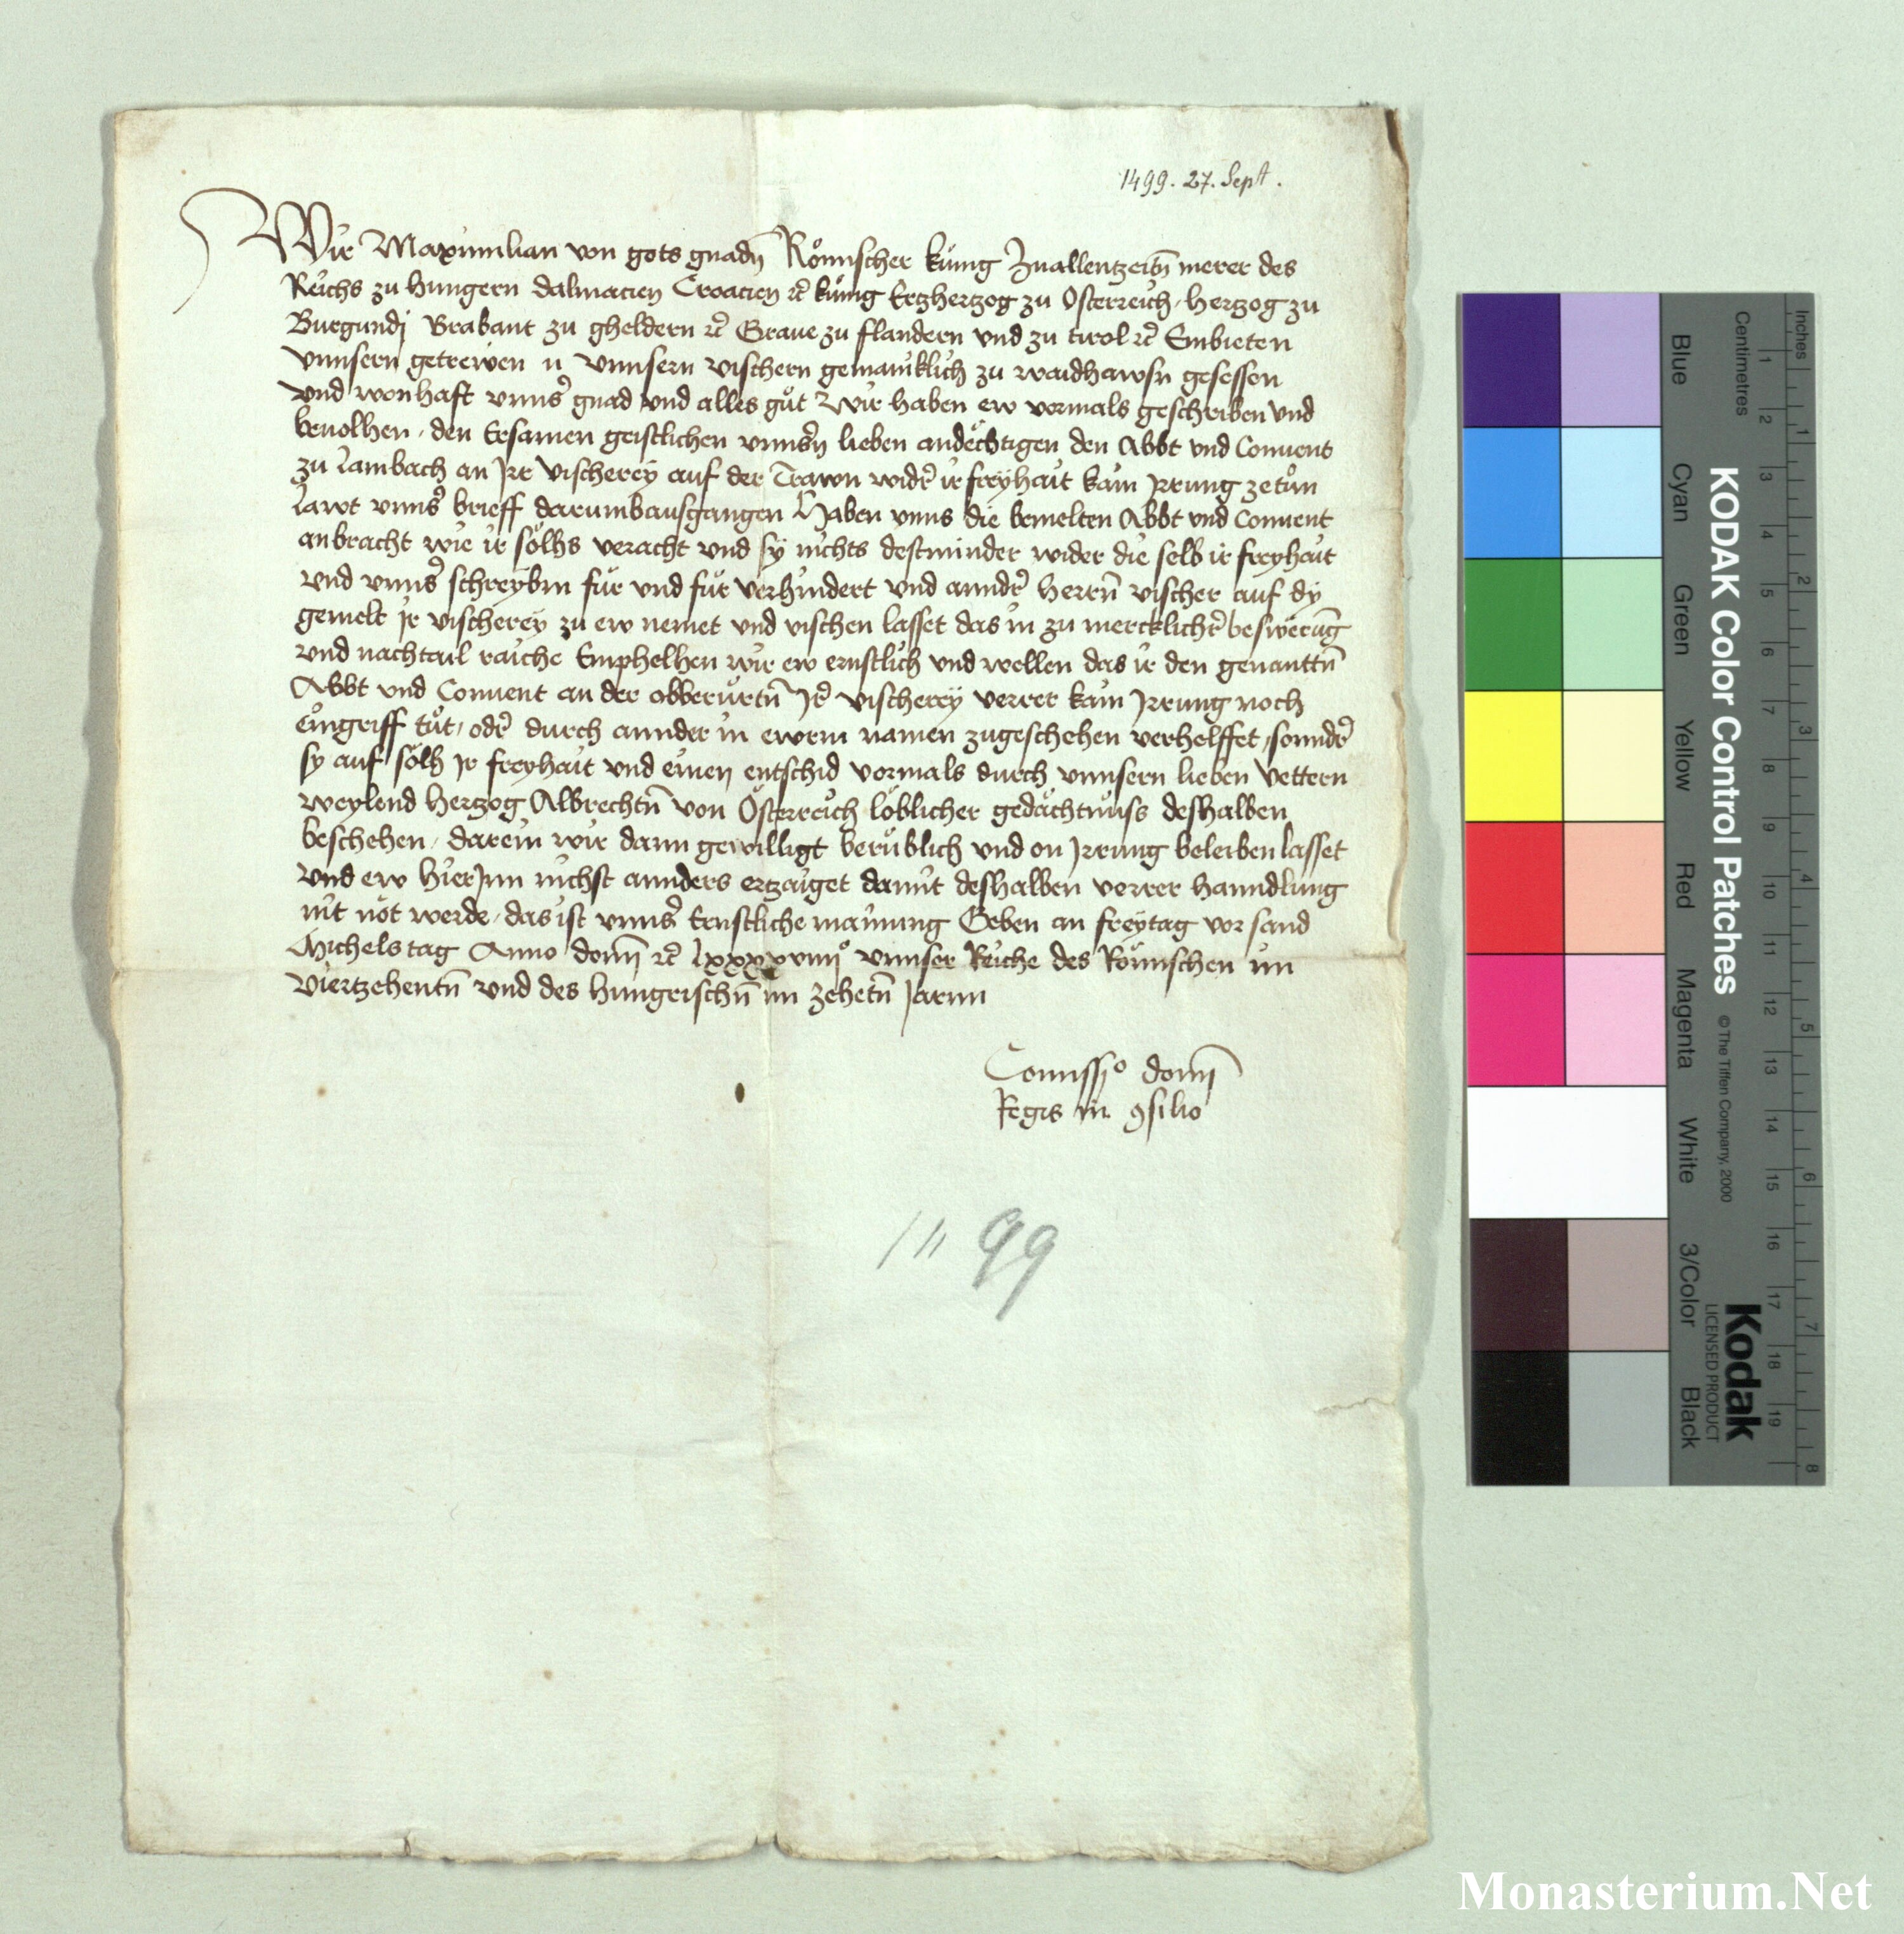 1499. 27. Sept.
Wir Maximilian von gots gnadn̄ Römischer kunig Zuallentzeitn̄ merer des
Reichs zu hungern dalmacien Croacien ꝛc̄ kunig Ertzhertzog zu Osterreich, hertzog zu
Burgundj Brabant zu gheldern ꝛc̄ Graue zu flandern vnd zu tirol ꝛc̄ Embieten
vnnsern getrewen n vnnsern vischern gemainklich zu waidhawsn gesessen
vnd wonhaft vnns̄ gnad vnd alles gůt Wir haben ew vormals geschriben vnd
beuolhen, den Ersamen geistlichen vnnsn̄ lieben andechtigen den Abbt vnd Conuent
zu Lambach an Irr vischerey auf der Trawn widr̄ ir freyhait kain Irrung zetůn
Lawt vnns̄ brieff darumbausgangen Haben vnns die bemelten Abbt vnd Conuent
anbracht wie ir sölhs veracht vnd sÿ nichts destminder wider die selb ir freyhait
vnd vnns̄ schreybm für vnd für verhindert vnd anndr̄ herrn̄ vischer auf dÿ
gemelt Ir vischerey zu ew nemet vnd vischen lasset das in zu mercklichr̄ beswerūg
vnd nachtail raiche Emphelhen wir ew ernstlich vnd wellen das ir den genanttn̄
Abbt vnd Conuent an der obberürtn̄ Ir̄ vischerey verrer kain Irrung noch
eingriff tůt, odr̄ durch annder in ewrm namen zugeschehen verhelffet, sonndr̄
sy auf sölh Ir freyhait vnd einen entschid vormals durch vnnsern lieben vettern
weylend hertzog Albrechtn̄ von Österreich löblicher gedächtnüss deshalben
beschehen, darein wir dann gewilligt berüblich vnd on Irrung beleiben lasset
vnd ew hierJnn nichst annders ertzaiget damit deshalben verrer hanndlung
nit nöt werde, das ist vnns̄ Ernstliche mainung Geben an freytag vor sand
Michels tag Anno domı̄ ꝛc̄ lxxxxviiijͦ vnnser Reiche des Römischen im
viertzehentn̄ vnd des hungrischn̄ im zehetn̄ Jarnn
Comissjͦ domı̄
Regis in ꝯsilio
1"99
Inches
Centimetres
1 2 3 4 5 6 7 8
1 2 3 4 5 6 7 8 9 10 11 12 13 14 15 16 17 18 19
KODAK Color Control Patches
© The Tiffen Company, 2000
Kodak
LICENSED PRODUCT
Blue
Cyan
Green
Yellow
Red
Magenta
White
3/Color
Black
Monasterium.Net